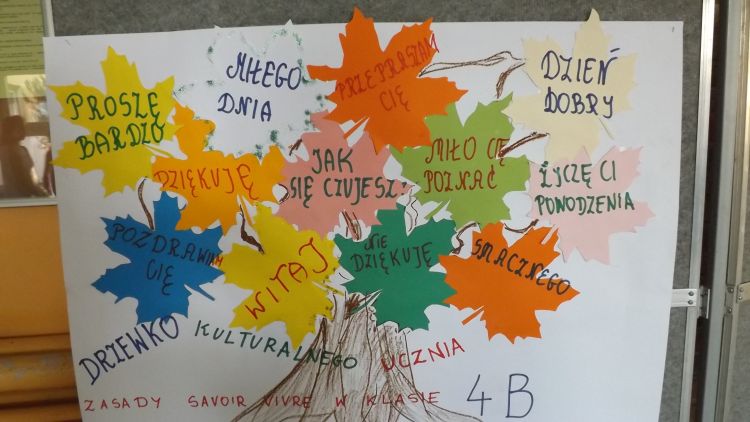 PROSZĘ
BARDZO
MIŁEGO
DNIA
PRZEPRASZAM
CIĘ
DZIEŃ
DOBRY
DZIĘKUJĘ
JAK
SIĘ CZUJESZ?
MIŁO CIĘ
POZNAĆ
ŻYCZĘ CI
POWODZENIA
POZDRAWIAM
CIĘ
WITAJ
NIE
DZIĘKUJĘ
SMACZNEGO
DRZEWKO KULTURALNEGO UCZNIA
ZASADY SAVOIR VIVRE W KLASIE 4B